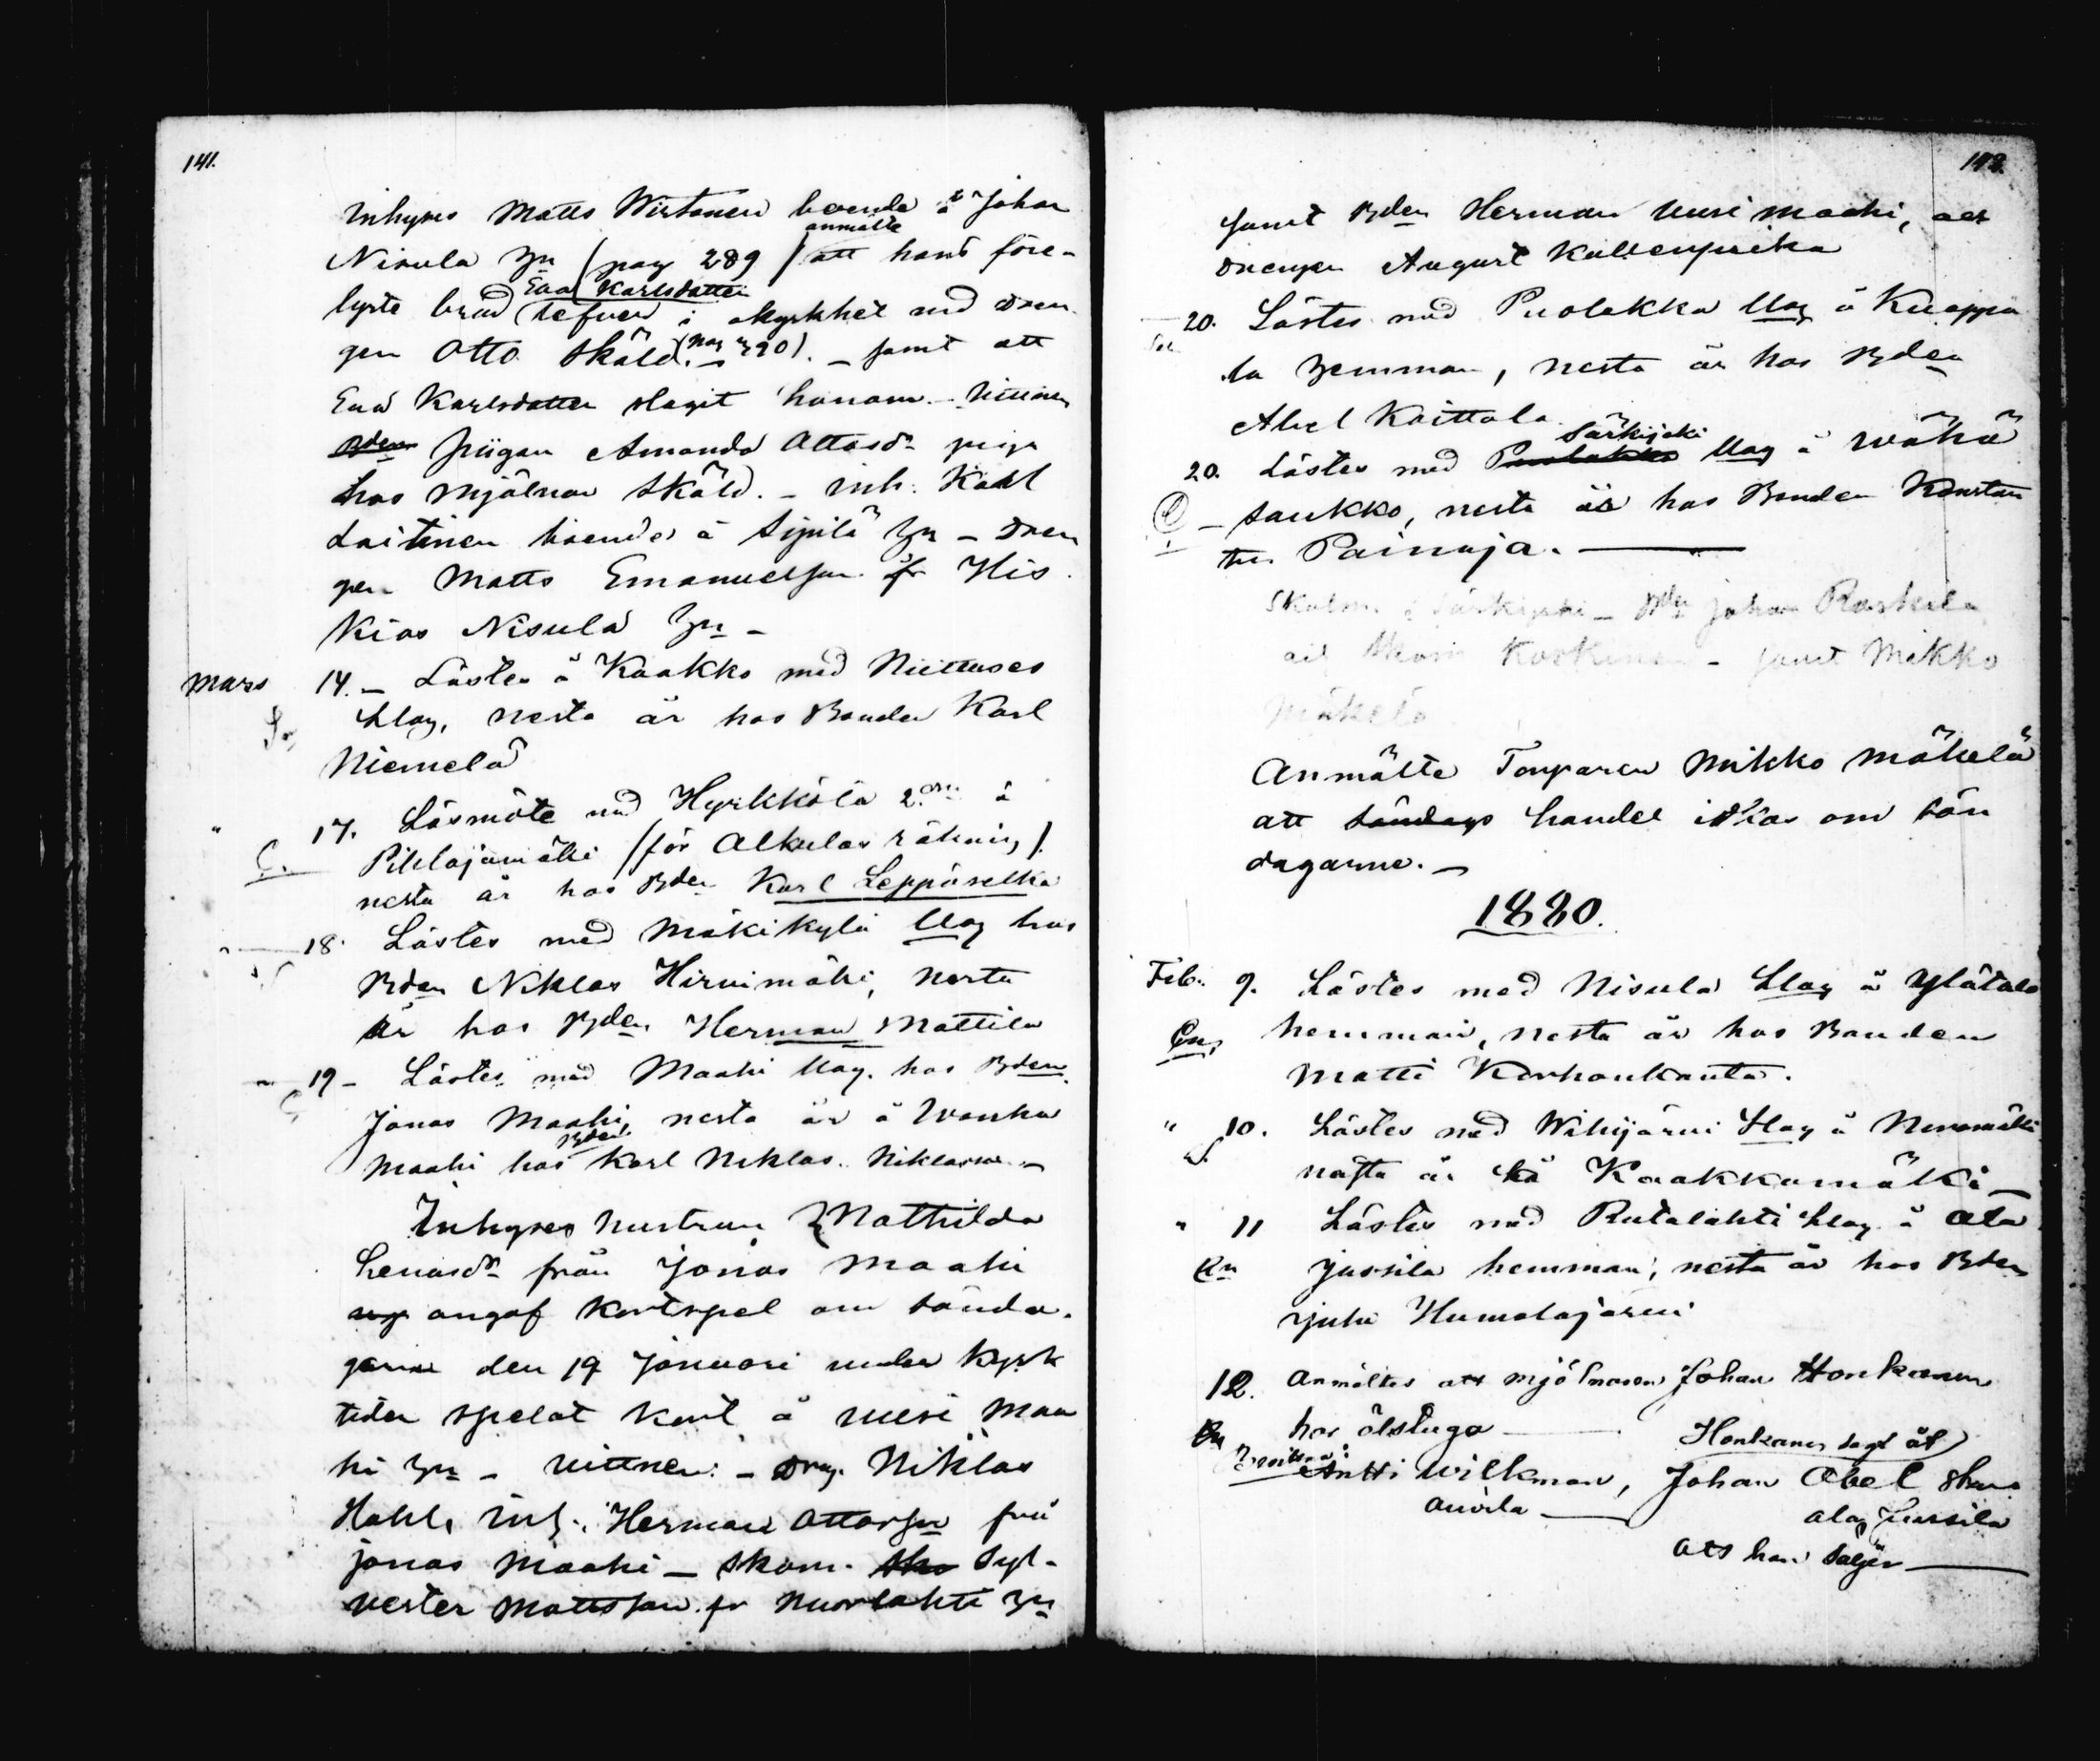 141.
Inhyses Matts Wirtanen boende å Johan
anmälte
Nisula Hn (pag 289) att hans före-
Eva Karlsdotter
lyste brud lefver i okyskhet med dren
gen Otto Sköld (pag 290). – samt att
Eva Karlsdotter slagit honom. – Vittnen
Bden pigan Amanda Ottosdr piga
hos mjölnar Sköld. – Inh. Karl
Laitinen boende å Sipilä Hn – dren
gen Matts Emanuelson fr His
kias Nisula Hn –
Mars 14. – Lästes å Kaakko med Niittuses
Llag, nesta är hos Bonden Karl
Niemelä
" 17. Läsmöte med Hyrkkölä 2dra å
Pihlajamäki (för Alkulas räkning)
nesta är hos Bden Karl Leppäselkä
" 18. Lästes med Mäkikylä Llag hos
Bden Niklas Hirvimäki, nesta
är hos Bden Herman Mattila
" 19 – Lästes med Maahi Llag. hos Bden
Jonas Maahi, nesta är å Wanha
Bden
Maahi hos Karl Niklas. Niklasson –
Inhyses hustrun Mathilda
Henasdr från Jonas Maahi
angaf kortspel om sönda-
garne den 19 Januari under kyrk
tiden spelat kort å Uusi Maa
hi Hn – vittnen: – Drg. Niklas
Inh. Herman Ottosson från
Jonas Maahi – Skom. Syl-
vester Mattsson fr Nuorlahti Hn
142.
samt Bden Herman Uusi Maahi, och
drengen August Kaltenpeika
20. Lästes med Puolakka Llag å Kuoppa
la Hemman, nesta är hos Bden
Abel Koittola.
Särkijoki
20. Lästes med Puolakka Llag å Wähä
Saukko, nesta är hos Bonden Konstan
tin Painoja. –
Skolm. i Särkijoki – Bden Johan Raskila
Koskinen – samt Mikko
Mäkelä
Anmälte Torparen Mikko Mäkelä
att söndags handel idkas om sön
dagarne. –
1880.
Feb. 9. Lästes med Nisula Llag å Ylätalo
hemman, nesta är hos Bonden
Matti Korhonkanta.
" 10. Lästes med Wihijärvi Llag å Nevamäki
nästa är på Kaakkomäki –
" 11 Lästes med Rutalahti Llag å Ala
Jussila hemman; nesta är hos Bden
Juho Humalajärvi
12. Anmältes att mjölnaren Johan Honkanen
har ölstuga –
Honkanen sagt åt
Antti Wilkman, Johan Abel
Anoila – Ala Jussila
att han säljer –